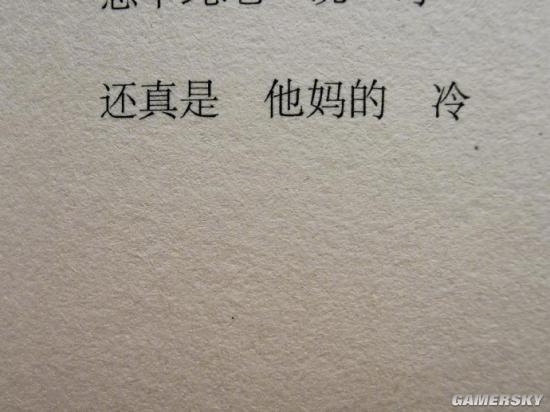 还真是　他妈的　冷
GAMERSKY